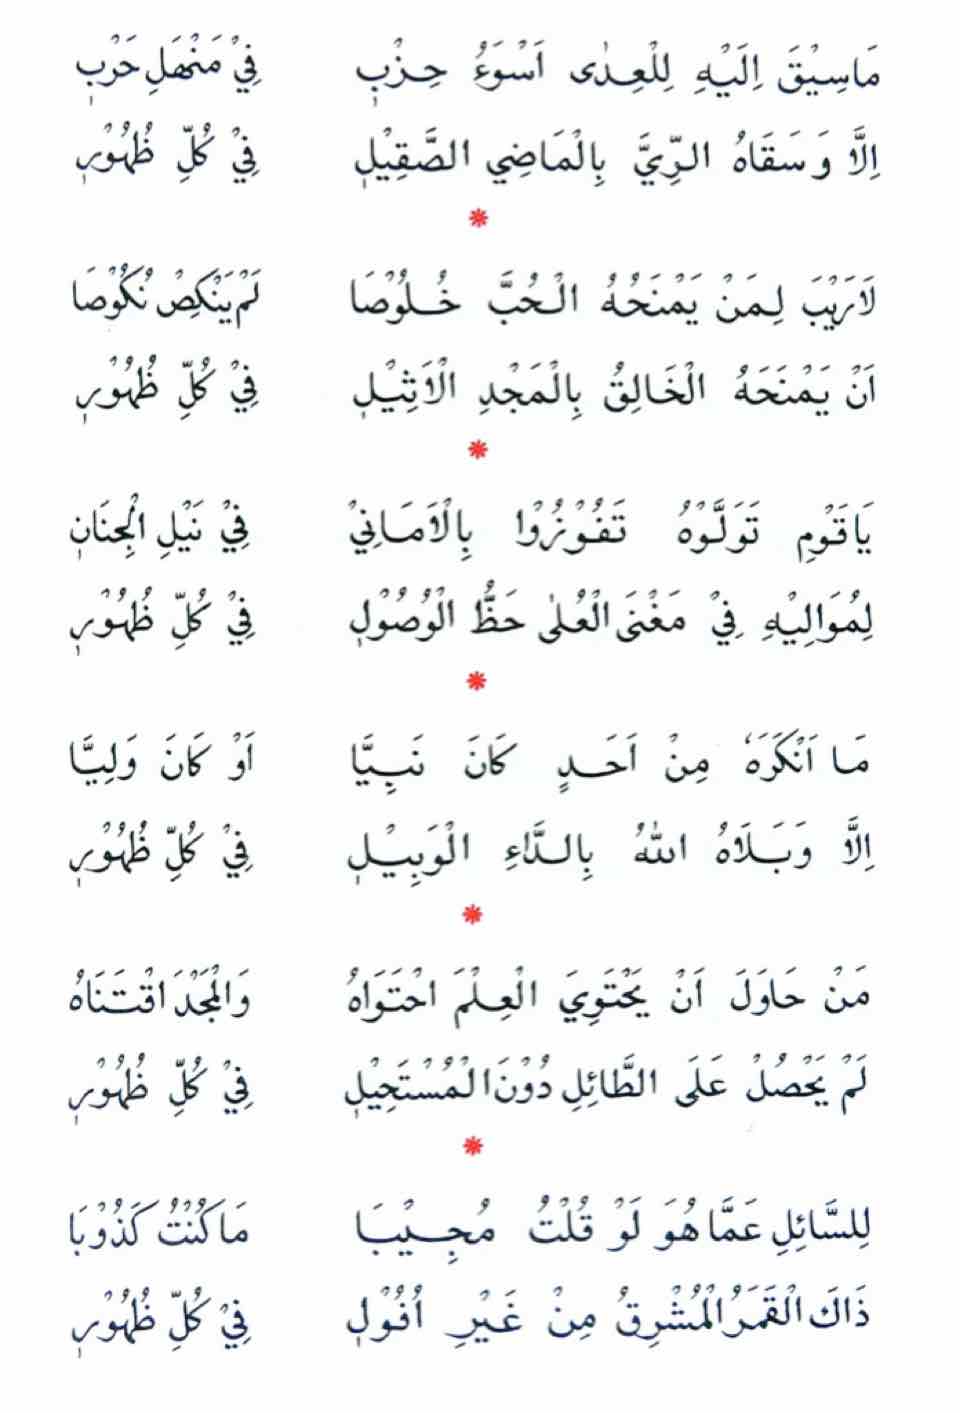 مَاسِيْقَ اِلَيْهِ لِلْعِدٰى اَسْوَءُ حِزْبٖ فِيْ مَنْهَلِ حَرْبٖ
اِلَّا وَسَقَاهُ الرِّيَّ بِالْمَاضِي الصَّقِيْلٖ فِيْ كُلِّ ظُهُوْرٖ
لَارَيْبَ لِمَنْ يَمْنَحُهُ الْحُبَّ خُلُوْصَا لَمْ يَنْكِصْ نُكُوْصَا
اَنْ يَمْنَحَهُ الْخَالِقُ بِالْمَجْدِ الْاَثِيْلٖ فِيْ كُلِّ ظُهُوْرٖ
يَاقَوْمِ تَوَلَّوْهُ تَفُوْزُوْا بِالْاَمَانِيْ فِيْ نَيْلِ الْجِنَانٖ
لِمُوَالِيْهِ فِيْ مَغْنَى الْعُلٰى حَظُّ الْوُصُوْلٖ فِيْ كُلِّ ظُهُوْرٖ
مَا اَنْكَرَهٗ مِنْ اَحَدٍ كَانَ نَبِيَّا اَوْ كَانَ وَلِيَّا
اِلَّا وَبَلَاهُ اللهُ بِالدَّاءِ الْوَبِيْلٖ فِيْ كُلِّ ظُهُوْرٖ
مَنْ حَاوَلَ اَنْ يَحْتَوِيَ الْعِلْمَ احْتَوَاهُ وَالْمَجْدَ اقْتَنَاهُ
لَمْ يَحْصُلْ عَلَى الطَّائِلِ دُوْنَ الْمُسْتَحِيْلٖ فِيْ كُلِّ ظُهُوْرٖ
لِلسَّائِلِ عَمَّا هُوَ لَوْ قُلْتُ مُجِيْبَا مَا كُنْتُ كَذُوْبَا
ذَاكَ الْقَمَرُ الْمُشْرِقُ مِنْ غَيْرِ اُفُوْلٖ فِيْ كُلِّ ظُهُوْرٖ